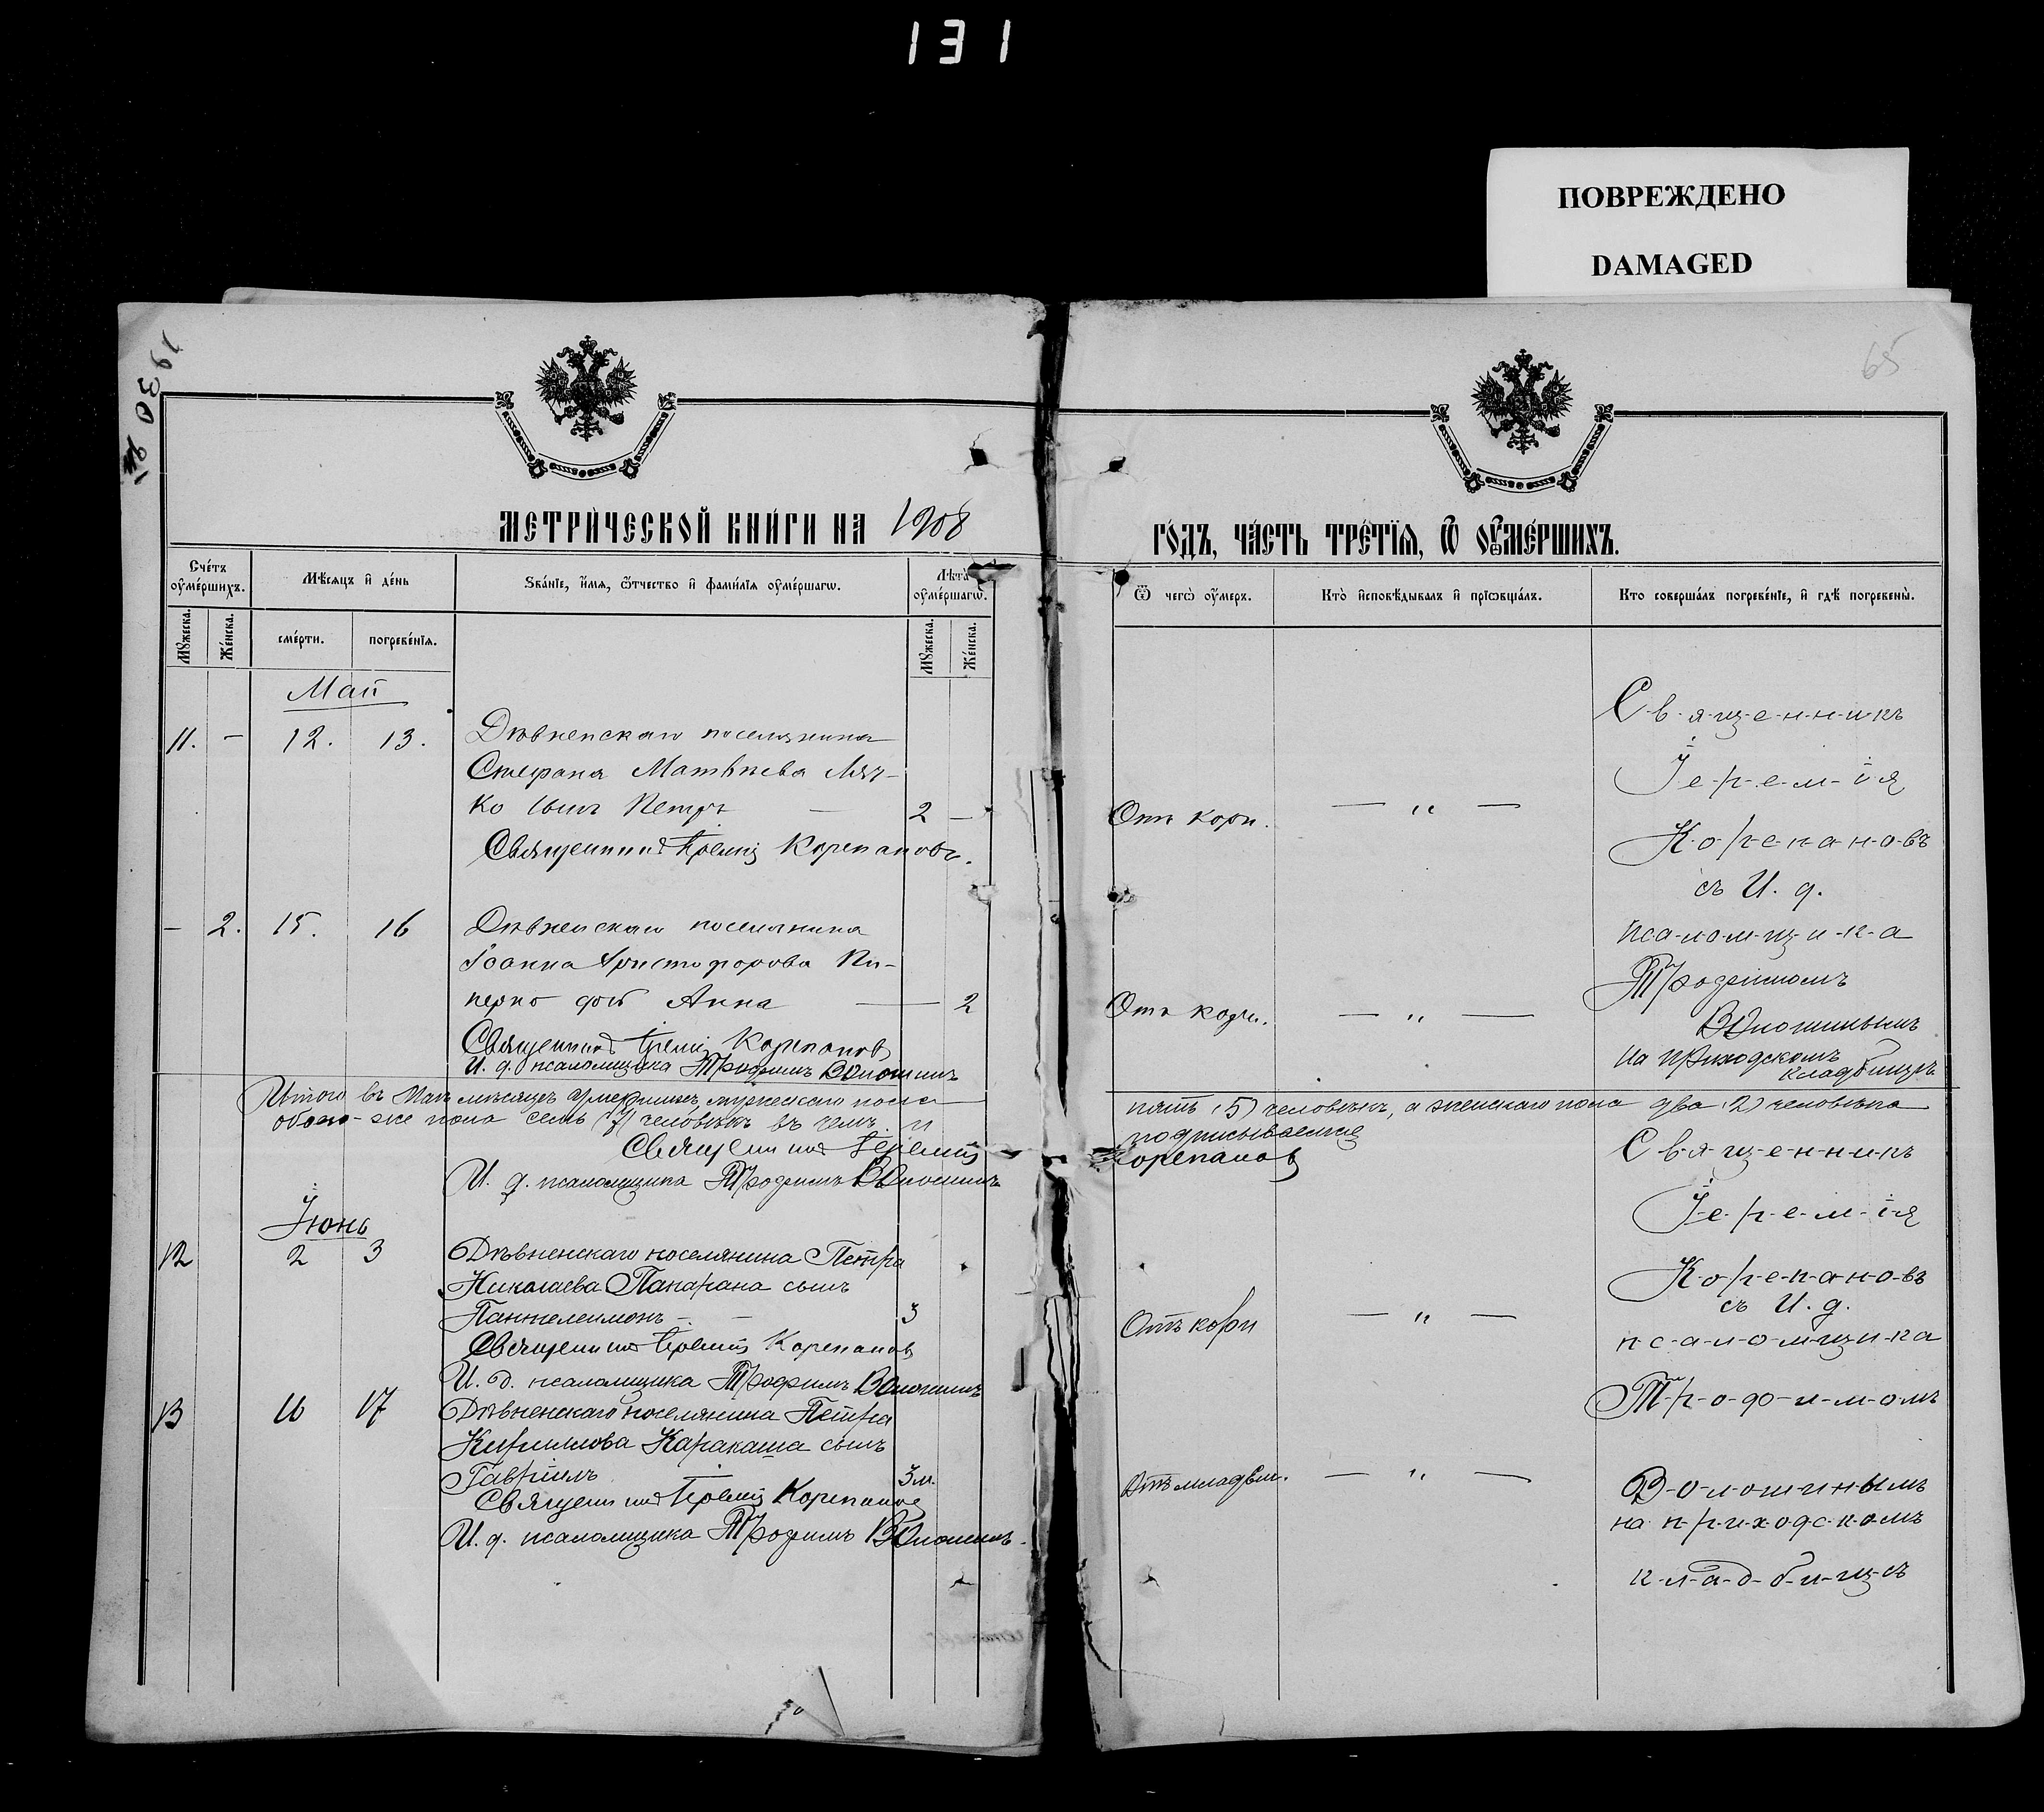 131
ПОВРЕЖДЕНО
DAMAGED
65
МЕТРИЧЕСКОЙ КНИГИ НА 1908
ГОДЪ, ЧАСТЬ ТРЕТІЯ, Ѿ ОУМЕРШИХЪ.
Счетъ оумершихъ.
Мѣсяцъ и день
Званіе, имя, ѿтчество и фамилія оумершагѡ.
Лѣта оумершагѡ.
Ѿ чегѡ оумеръ.
Кто исповѣдывалъ и пріѡбщалъ.
Кто совершалъ погребеніе, и гдѣ погребены.
Мужеска.
Женска.
смерти.
погребенія.
Мужеска.
Женска.
Май
11. - 12. 13. Дѣвненскаго поселянина
Стефана Матвѣева Ляч-
ко сынъ Петръ — 2 —
Отъ кори. — „ —
Священникъ Іеремія Корепановъ.
- 2. 15. 16 Дѣвненскаго поселянина
Іоанна Христофорова Пи-
перко дочь Анна — 2
Отъ кори. — „ —
Священникъ Іеремія Корепановъ
И. д. псаломщика Трофимъ Волошинъ
Священникъ
Іеремія
Корепановъ
съ И. д.
псаломщика
Трофимомъ
Волошинымъ
на приходскомъ
кладбищѣ
Итого въ Маѣ мѣсяцѣ умершихъ мужескаго пола пять (5) человѣкъ, а женскаго пола два (2) человѣка
обоего-же пола семь (7) человѣкъ въ чемъ и подписываемся
Священникъ Іеремія Корепановъ
И. д. псаломщика Трофимъ Волошинъ
Іюнь
12 2 3 Дѣвненскаго поселянина Петра
Николаева Панарана сынъ
Пантелеимонъ — 3
Отъ кори — „ —
Священникъ Іеремія Корепановъ
И. д. псаломщика Трофимъ Волошинъ
13 16 17 Дѣвненскаго поселянина Петра
Кириллова Каракаша сынъ
Гавріилъ — 3 м.
Отъ младен. — „ —
Священникъ Іеремія Корепановъ
И. д. псаломщика Трофимъ Волошинъ.
Священникъ
Іеремія
Корепановъ
съ И. д.
псаломщика
Трофимомъ
Волошинымъ
на приходскомъ
кладбищѣ